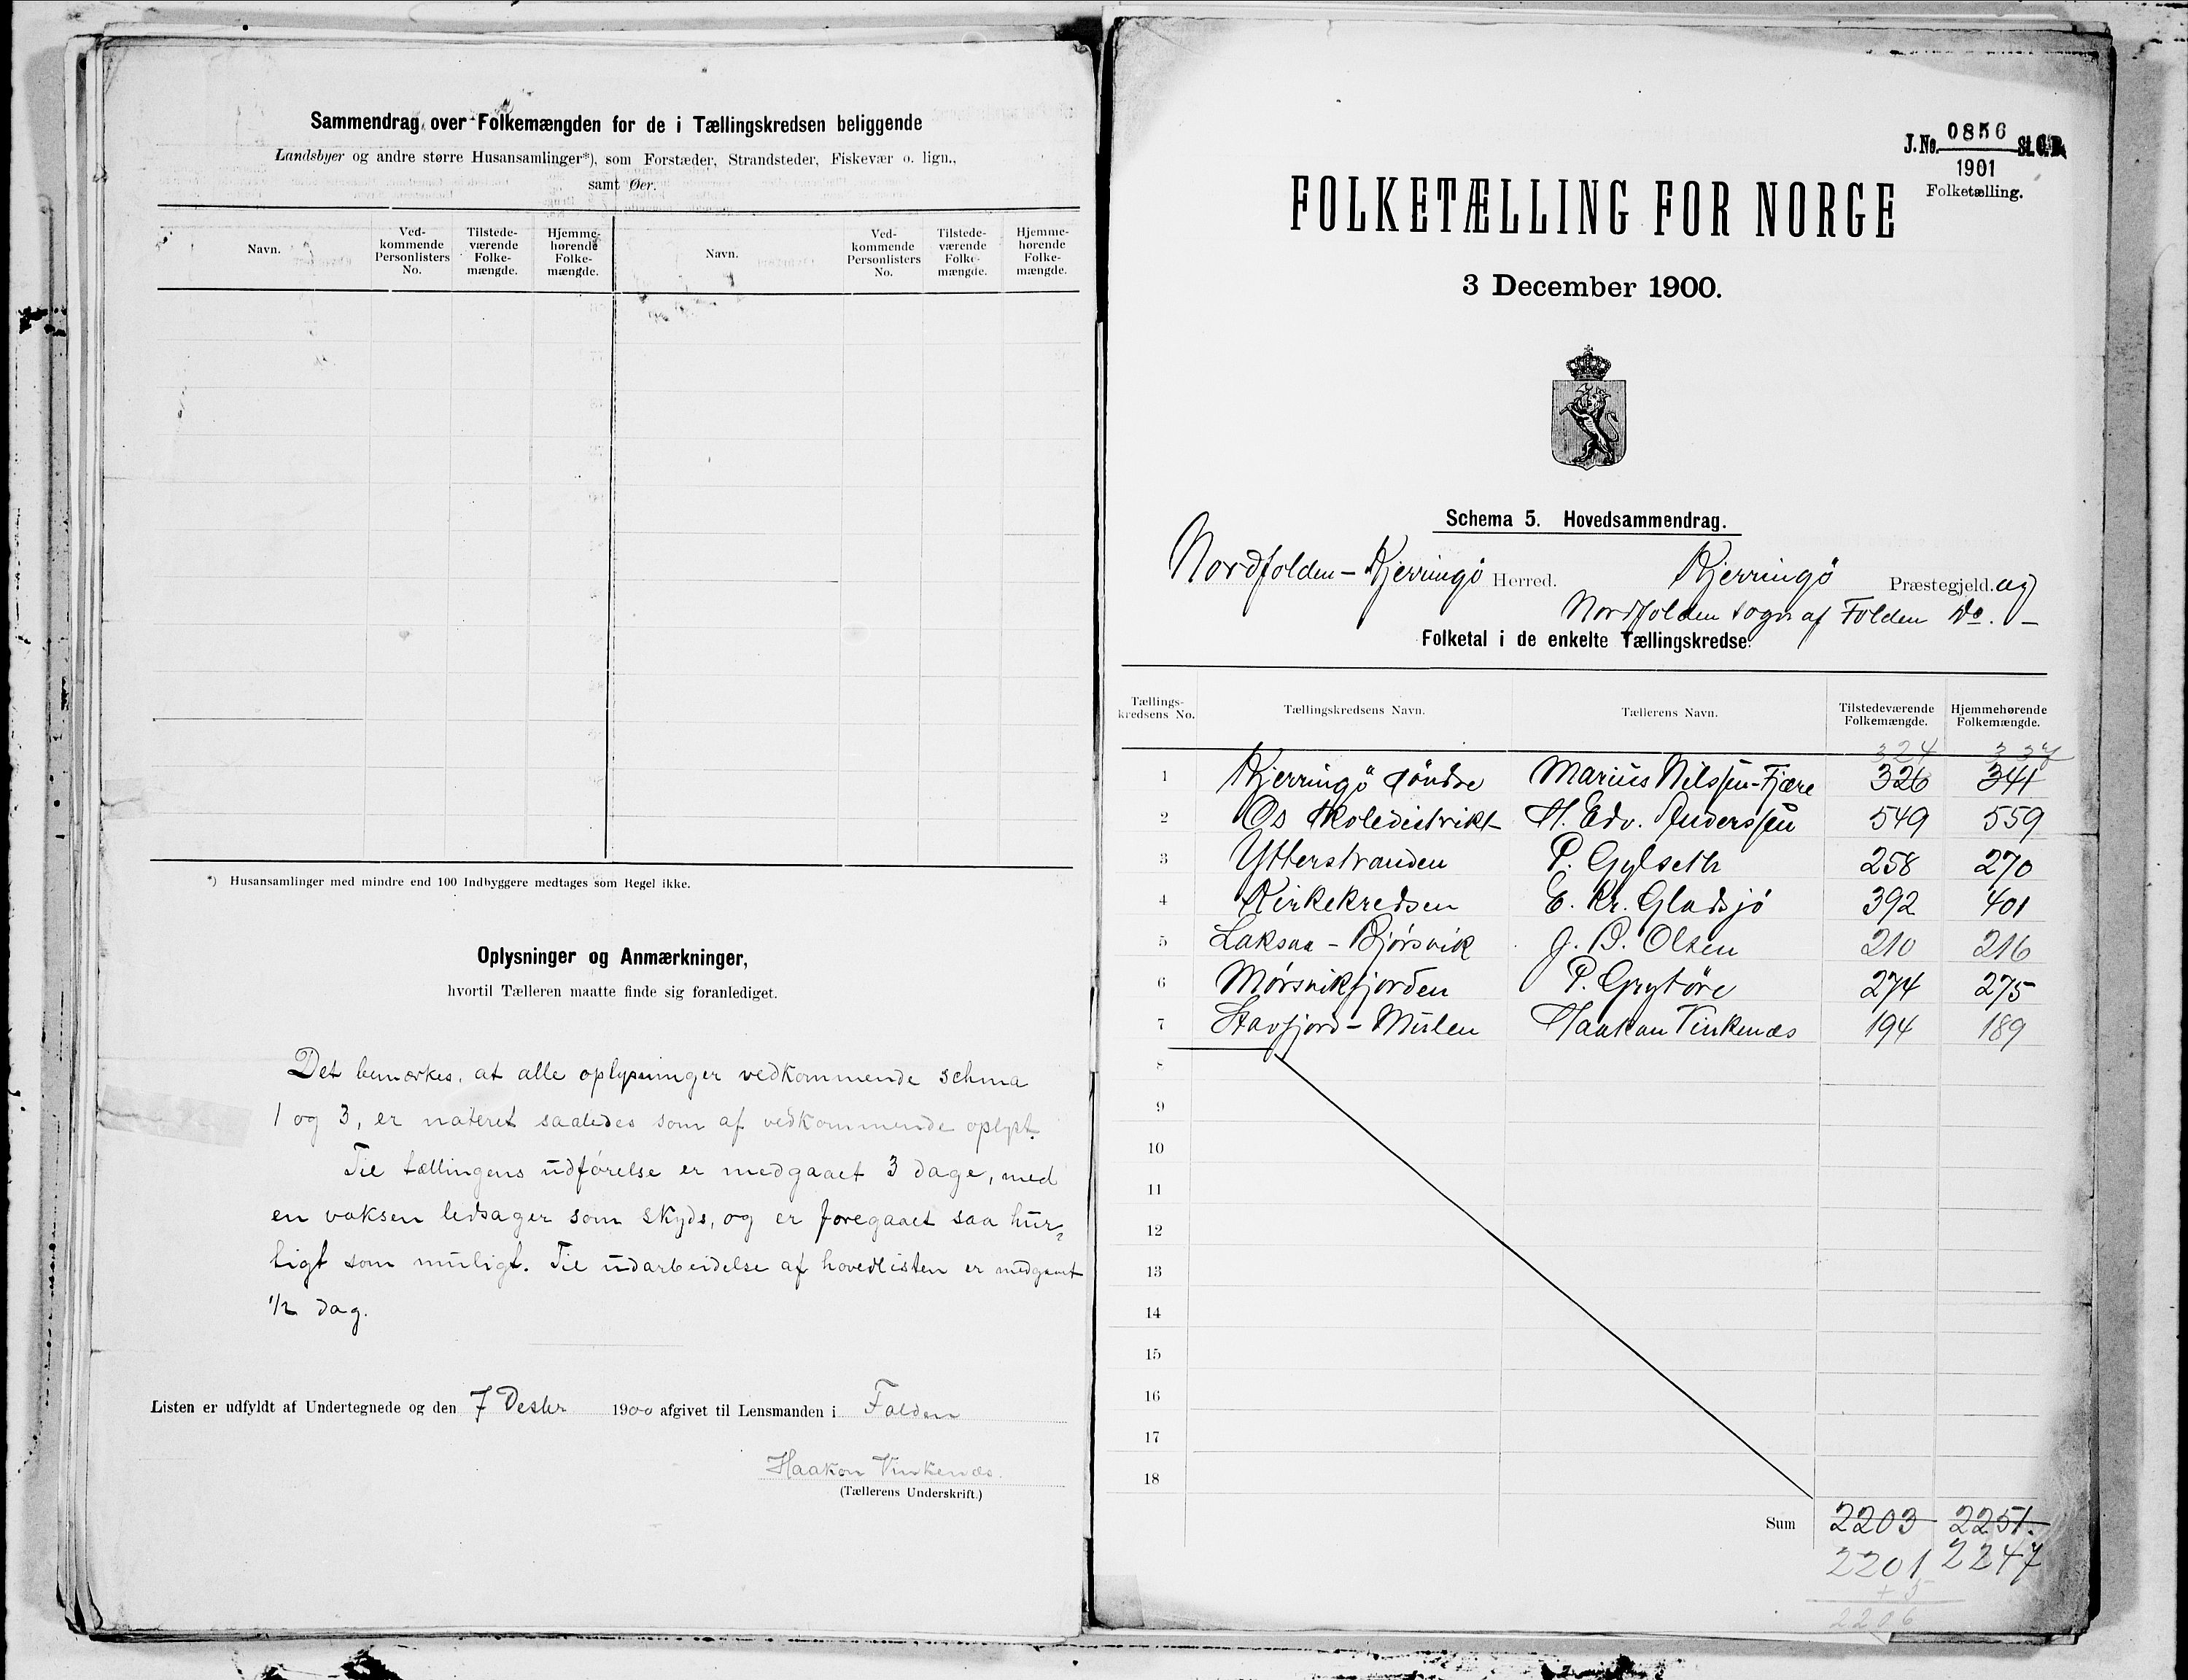 Sammendrag over Folkemængden for de i Tællingskredsen beliggende
Landsbyer og andre større Husansamlinger*), som Forstæder, Strandsteder, Fiskevær o. lign.,
samt Øer.
Navn. Ved-kommende Personlisters No. Tilstede-værende Folke-mængde. Hjemme-hørende Folke-mængde. Navn. Ved-kommende Personlisters No. Tilstede-værende Folke-mængde. Hjemme-hørende Folke-mængde.
*) Husansamlinger med mindre end 100 Indbyggere medtages som Regel ikke.
Oplysninger og Anmærkninger,
hvortil Tælleren maatte finde sig foranlediget.
Det bemærkes, at alle oplysninger vedkommende schma
1 og 3, er noteret saaledes som af vedkommende oplyst.
Til tællingens udførelse er medgaaet 3 dage, med
en voksen ledsager som skyds, og er foregaaet saa hur-
tigt som muligt. Til udarbeidelse af hovedlisten er medgaaet
1/2 dag.
Listen er udfyldt af Undertegnede og den 7 Desbr 1900 afgivet til Lensmanden i Folden
Haakon Vinkenæs.
(Tællerens Underskrift.)
J. No. 0856 St. C. B.
1901
Folketælling.
FOLKETÆLLING FOR NORGE
3 December 1900.
Schema 5. Hovedsammendrag.
Nordfolden-Kjerringö Herred. Kjerringö Præstegjeld. og
Nordfolden sogn af Folden Do. —
Folketal i de enkelte Tællingskredse:
Tællings-kredsens No. Tællingskredsens Navn. Tællerens Navn. Tilstedeværende Folkemængde. Hjemmehørende Folkemængde.
324 337
1 Kjerringö söndre Marius Nilssen-Fjære 326 341
2 Os skoledistrikt H. Edv. Anderssen 549 559
3 Ytterstranden P. Gylseth 258 270
4 Kirkekredsen E. Kr. Gladsjø 392 401
5 Laksaa - Bjørsvik J. B. Olsen 210 216
6 Mørsvikfjorden P. Grytöre 274 275
7 Stavfjord - Mulen Haakon Vinkenæs 194 189
8
9
10
11
12
13
14
15
16
17
18
Sum 2203 2251.
2201 2247
+ 5
2206